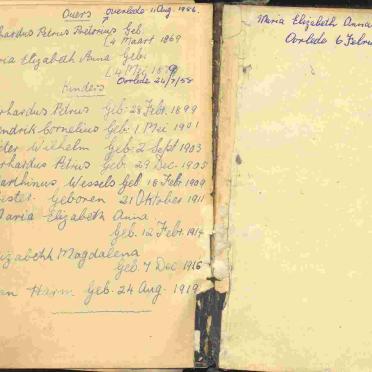 Ouers overlede 11 Aug. 1956.
hardus Petrus Pretorius Geb
[4 Maart 1869
ria Elizabeth Anna Geb:
[4 Mei 1879
Oorlede 24/7/58
Kinders
rhardus Petrus Geb. 28 Febr. 1899
endrik Cornelius Geb. 1 Mei 1901
ieter Wilhelm Geb. 2 Sept 1903
rhardus Petrus Geb. 29 Dec. 1905
arthinus Wessels Geb. 18 Febr. 1909
ister Geboren 21 Oktober 1911
Maria Elizabeth Anna
Geb. 12 Febr. 1914
lizabeth Magdalena
Geb. 7 Dec 1916
an Harm Geb. 24 Aug. 1919
Maria Elizabeth Anna
Oorlede 6 Febru